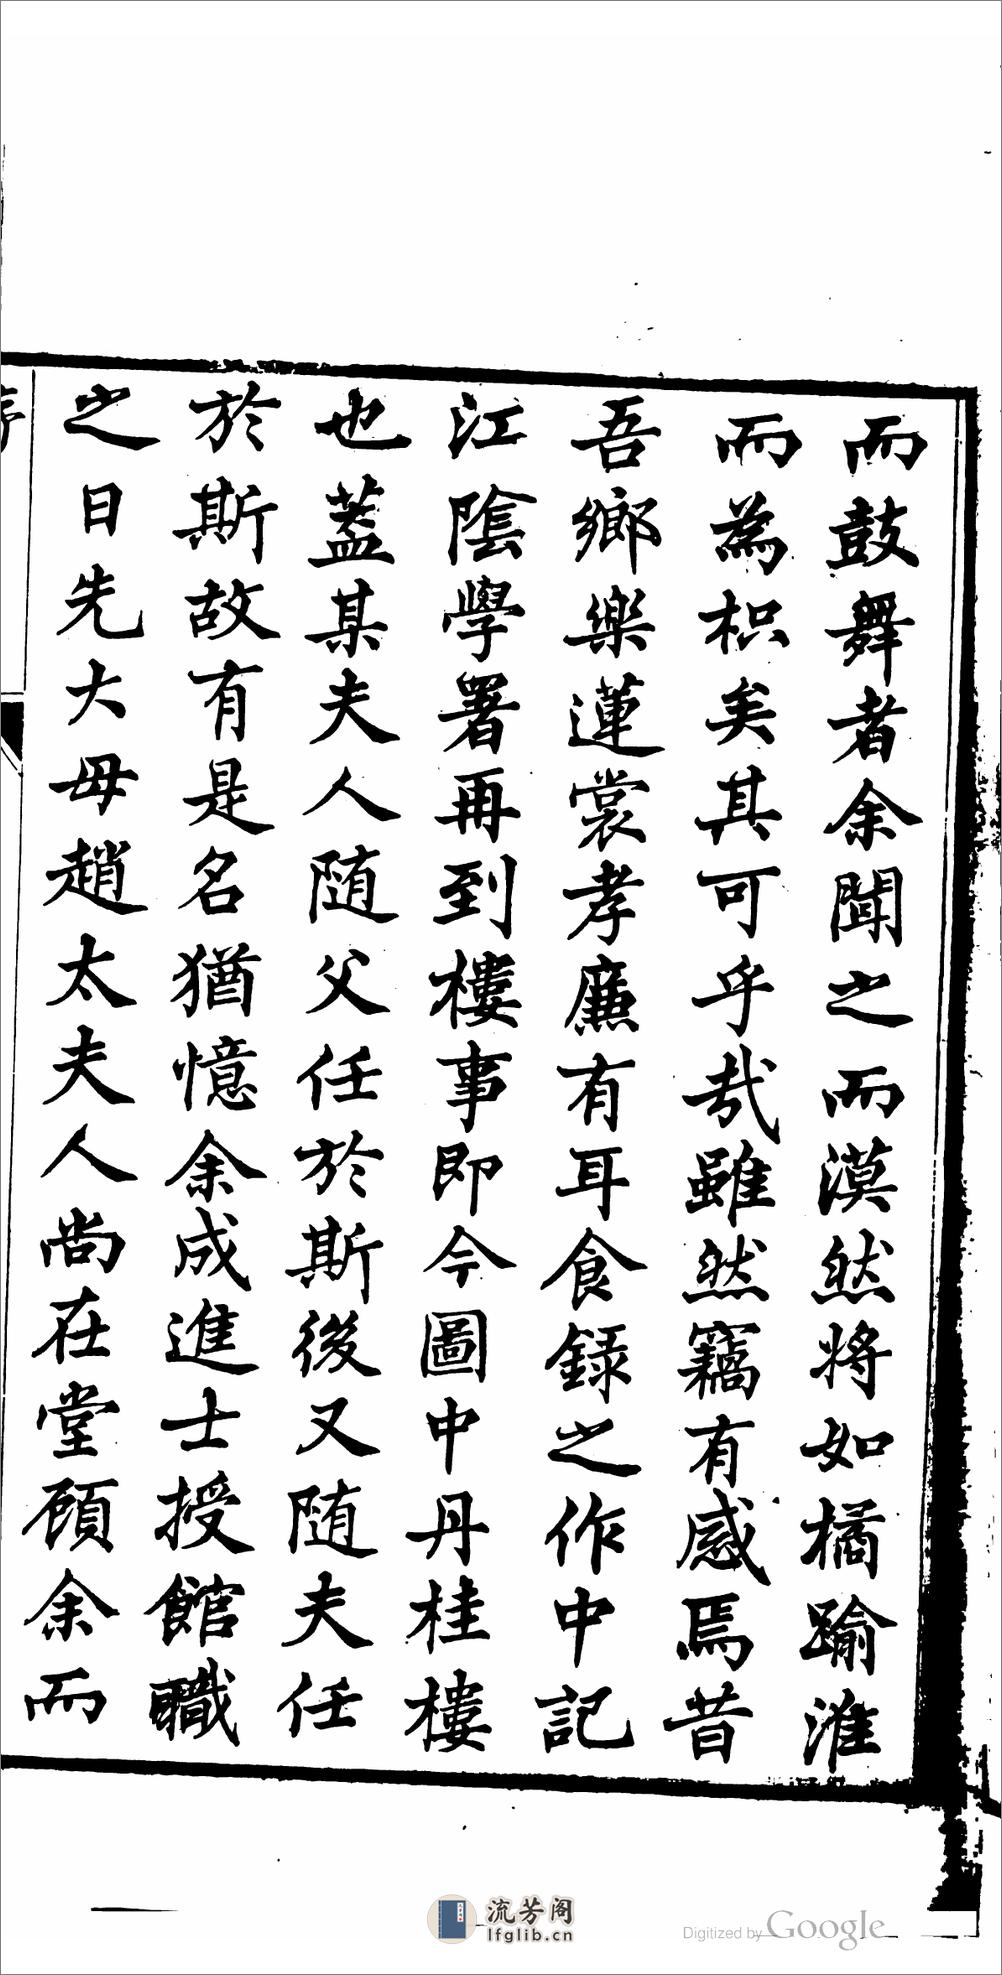 而鼓舞者余聞之而漠然將如橘踰淮
而為枳矣其可乎哉雖然竊有感焉昔
吾鄉樂蓮裳孝廉有耳食錄之作中記
江陰學署再到樓事即今圖中丹桂樓
也蓋某夫人隨父任於斯後又隨夫任
於斯故有是名猶憶余成進士授館職
之日先大母趙太夫人尚在堂顧余而
序
流芳阁
lfglib.cn
Digitized by Google